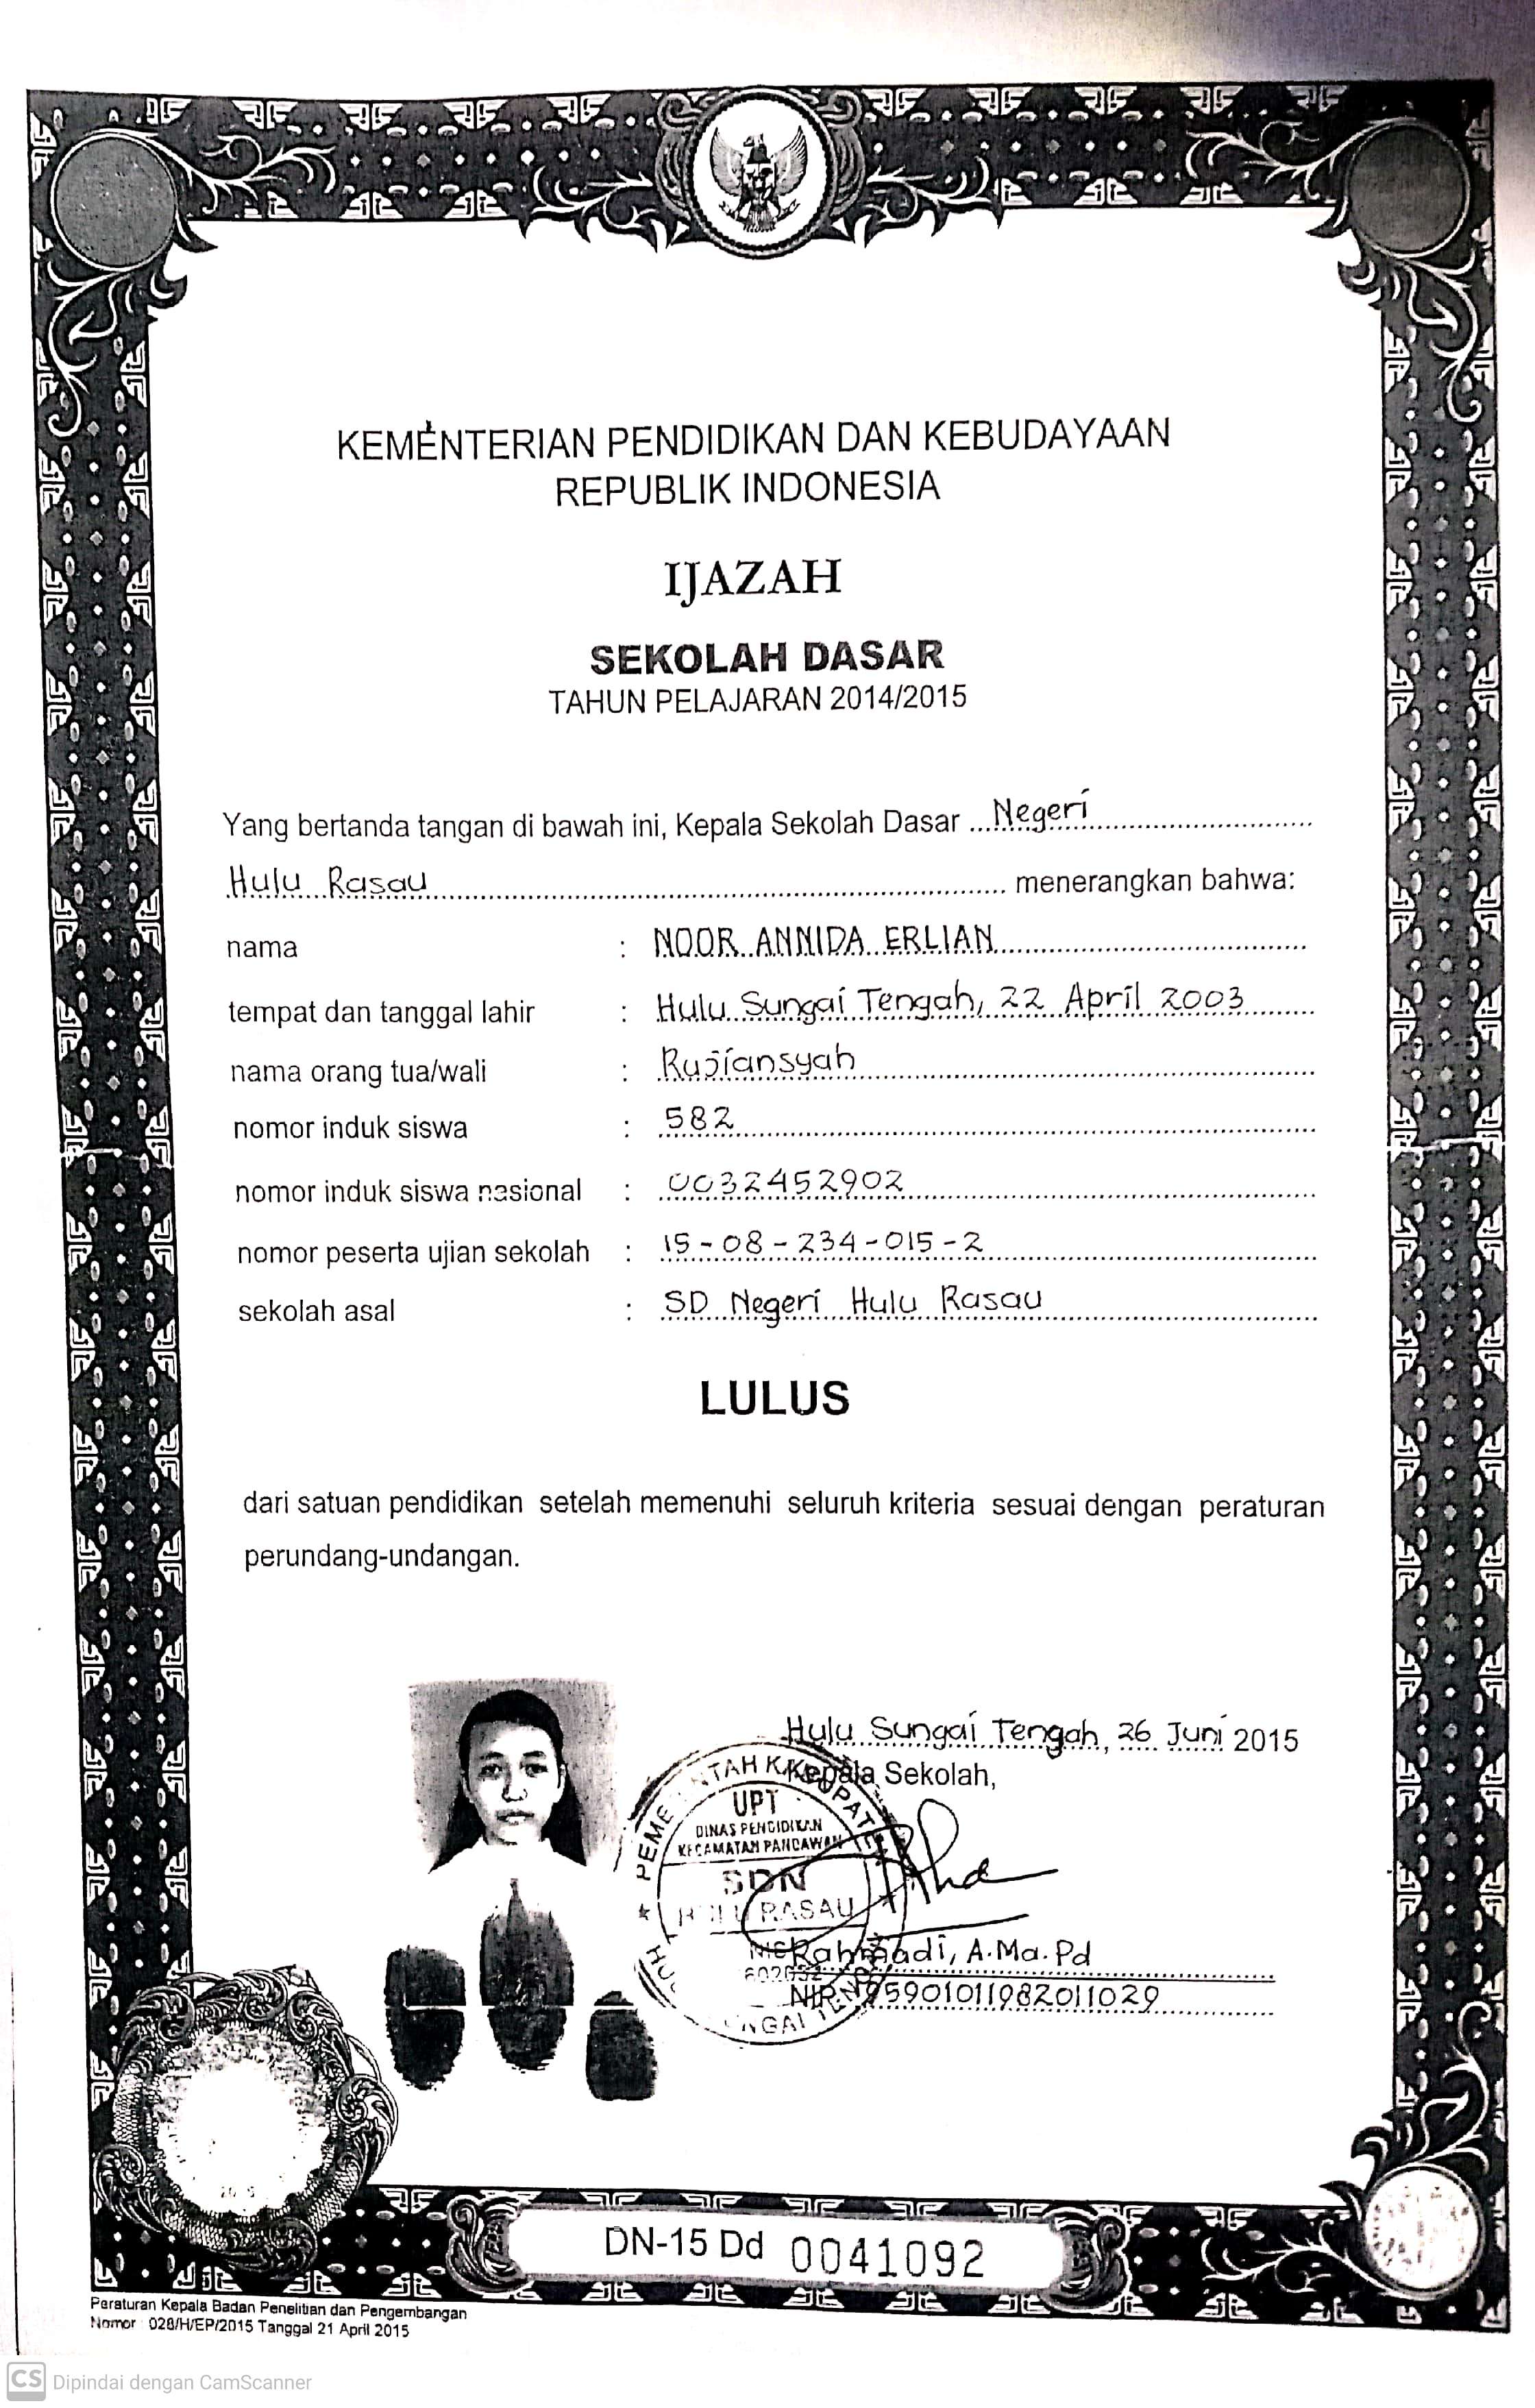 KEMENTERIAN PENDIDIKAN DAN KEBUDAYAAN
REPUBLIK INDONESIA
IJAZAH
SEKOLAH DASAR
TAHUN PELAJARAN 2014/2015
Yang bertanda tangan di bawah ini, Kepala Sekolah Dasar Negeri
Hulu Rasau menerangkan bahwa:
nama : NOOR ANNIDA ERLIAN
tempat dan tanggal lahir : Hulu Sungai Tengah, 22 April 2003
nama orang tua/wali : Rujiansyah
nomor induk siswa : 582
nomor induk siswa nasional : 0032452902
nomor peserta ujian sekolah : 15-08-234-015-2
sekolah asal : SD Negeri Hulu Rasau
LULUS
dari satuan pendidikan setelah memenuhi seluruh kriteria sesuai dengan peraturan
perundang-undangan.
Hulu Sungai Tengah, 26 Juni 2015
Kepala Sekolah,
UPT
DINAS PENDIDIKAN
KECAMATAN PANDAWAN
SDN
HULU RASAU
Rahmadi, A.Ma.Pd
NIP. 195901011982011029
DN-15 Dd 0041092
Peraturan Kepala Badan Penelitian dan Pengembangan
Nomor : 028/H/EP/2015 Tanggal 21 April 2015
CS Dipindai dengan CamScanner